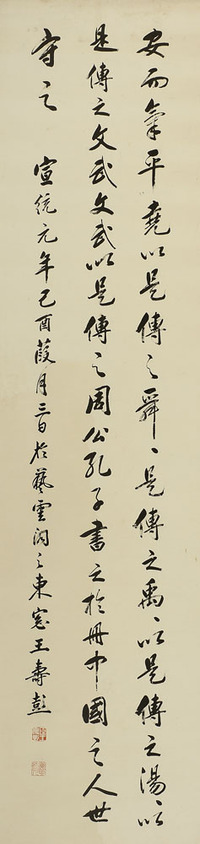 安而氣平堯以是傳之舜、是傳之禹、以是傳之湯、以
是傳之文武文武以是傳之周公孔子書之於冊中國之人世
守之 宣統元年己酉葭月三日於藝雲閣之東窓王壽彭